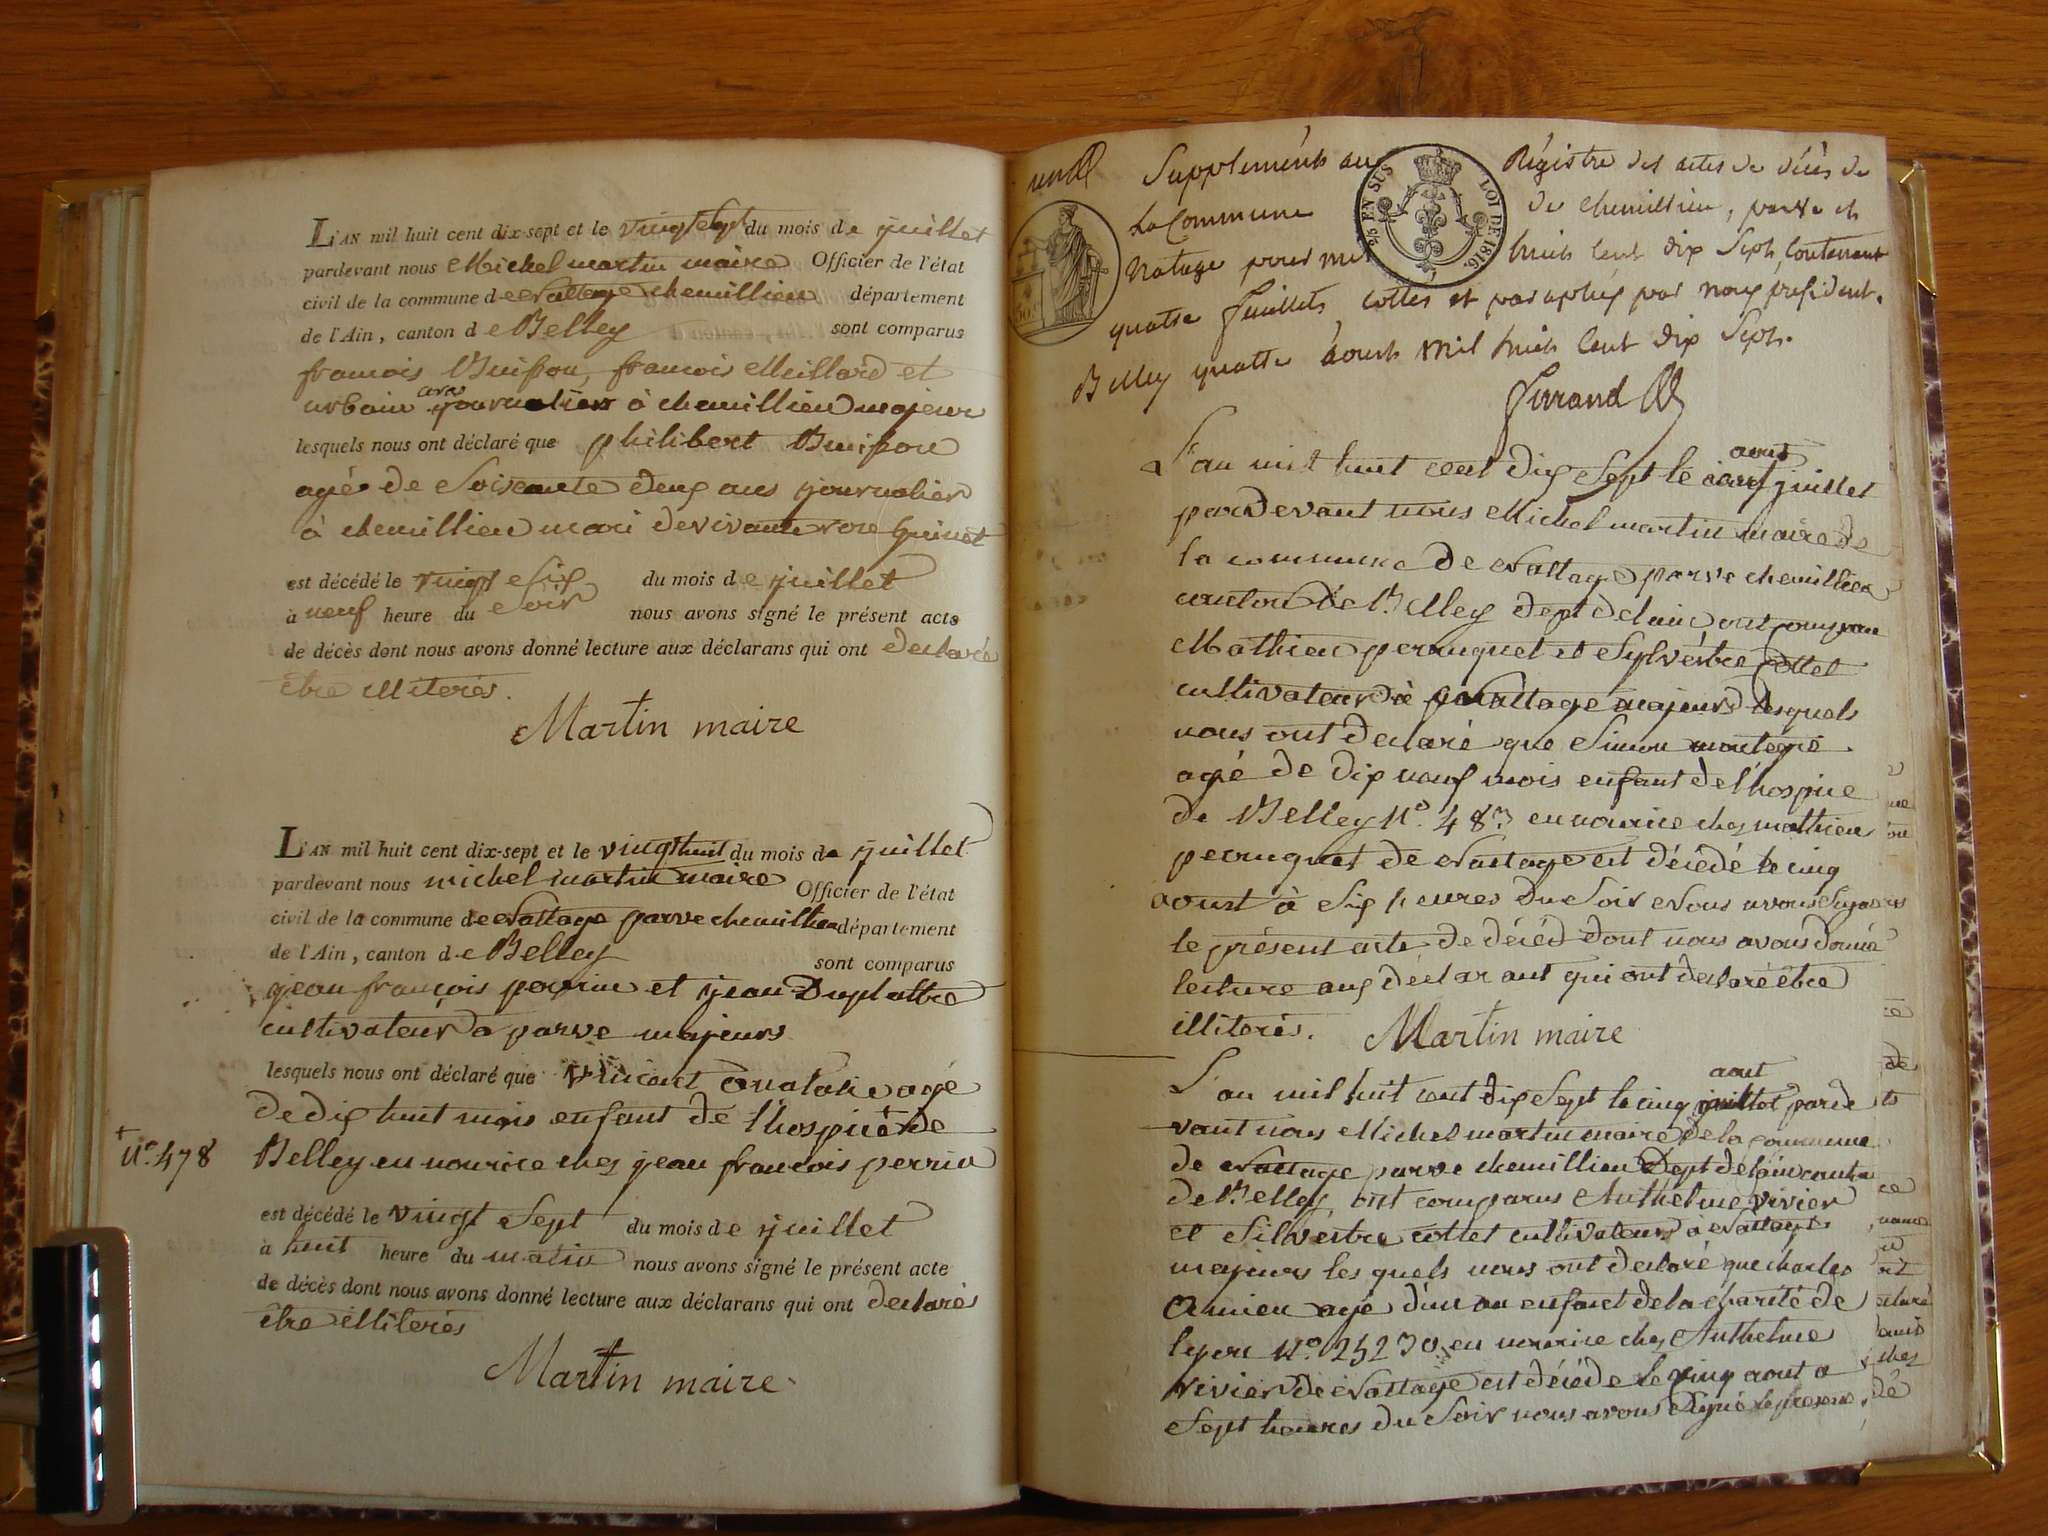 L'AN mil huit cent dix-sept et le vingt Sept du mois de juillet
pardevant nous Michel martin maire Officier de l'état
civil de la commune de Nattage chemillieu département
de l'Ain, canton de Belley sont comparus
francois Buisson, francois Meillard et
urbain journalier à chemillieu majeur
lesquels nous ont déclaré que philibert Buisson
agé de Soixante deux ans journalier
à chemillieu mari de vivante
est décédé le vingt Six du mois de juillet
à neuf heure du Soir nous avons signé le présent acte
de décès dont nous avons donné lecture aux déclarans qui ont declaré
être illiterés.
Martin maire
L'AN mil huit cent dix-sept et le vingt huit du mois de juillet
pardevant nous michel martin maire Officier de l'état
civil de la commune de Nattage parve chemillieu département
de l'Ain, canton de Belley sont comparus
jean françois perrin et jean Duplattre
cultivateur à parve majeurs
lesquels nous ont déclaré que vincent agé
de dix huit mois enfant de l'hospice de
N.º 478 Belley en nourice chez jean françois perrin
est décédé le vingt Sept du mois de juillet
à huit heure du matin nous avons signé le présent acte
de décès dont nous avons donné lecture aux déclarans qui ont declarés
être illiterés
Martin maire
Supplément au Régistre des actes de décès de
La Commune de chemillieu, parve et
Natage pour mil huit cent dix Sept, Contenant
quatre feuillets, cottés et paraphés par nous président.
Belley quatre Aoust Mil huit Cent dix Sept.
5/6 EN SUS LOI DE 1816.
Ferrand
L'an mil huit cent dix Sept le juillet aout
par devant nous Michel martin maire de
la commune de Nattage parve chemillieu
canton de Belley dept de l'ain ont comparu
Mathieu perruquet et Sylvestre Cottet
cultivateur à Nattage majeurs lesquels
nous ont declaré que Simon montegre
agé de dix neuf mois enfant de l'hospice
de Belley N.º 483 en nourice chez mathieu
perruquet de Nattage est décédé le cinq
aoust à Six heures du Soir Nous avons Signé
le présent acte de décéd dont nous avons donné
lecture aux déclarant qui ont declaré être
illiterés. Martin maire
L'an mil huit cent dix Sept le cinq juillet aout parde
vant nous Michel martin maire de la commune
de Nattage parve chemillieu Dept de l'ain canton
de Belley, ont comparus Anthelme vivier
et Silvestre cottet cultivateurs à Nattage
majeurs les quels nous ont declaré que charles
amieu agé d'un an enfant de la charité de
lyon N.º 25230 en nourice chez Anthelme
vivier de Nattage est décédé le cinq aout a
Sept heures du Soir nous avons Signé le présent